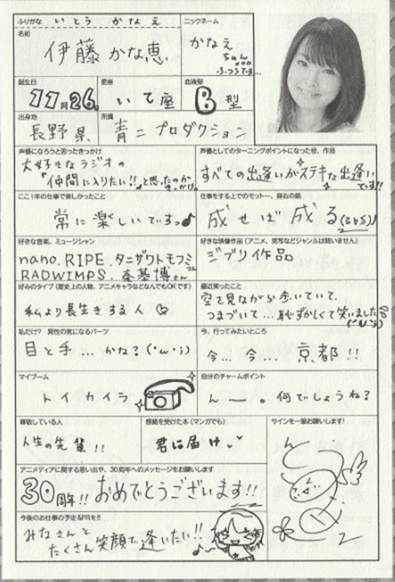 ふりがな いとう かなえ
ニックネーム
名前
伊藤かな恵
かなえ
ちゃん
ふつうです…
誕生日
星座
血液型
11月26日
いて座
B型
出身地
所属
長野県
青二プロダクション
声優になろうと思ったきっかけ
大好きなラジオの
"仲間に入りたい!!"と思ったのがきっかけ。
声優としてのターニングポイントになった役、作品
すべての出逢いがステキな出逢い
です!!
ここ1年の仕事で楽しかったこと
常に楽しいですっ♪
仕事をする上でのモットー、座右の銘
成せば成る
好きな音楽、ミュージシャン
nano.RIPE. タニザワトモフミ
RADWIMPS. 秦基博さん
好きな映像作品(アニメ、実写などジャンルは問いません)
ジブリ作品
好みのタイプ(歴史上の人物、アニメキャラなどなんでもOKです)
私より長生きする人♡
最近笑ったこと
空を見ながら歩いていて、
つまづいて...恥ずかしくて笑いました
私だけ? 異性の気になるパーツ
目と手...かな?(・ω・;)
今、行ってみたいところ
今...今...京都!!
マイブーム
トイカメラ
自分のチャームポイント
んー。何でしょうね?
尊敬している人
人生の先輩!!
感銘を受けた本(マンガでも)
君に届け
サインを一筆お願いします!
アニメディアに関する思い出や、30周年へのメッセージをお願いします
30周年!! おめでとうございます!!
今後のお仕事の予定&PRを!!
みなさんと
たくさん笑顔で逢いたい!!♪